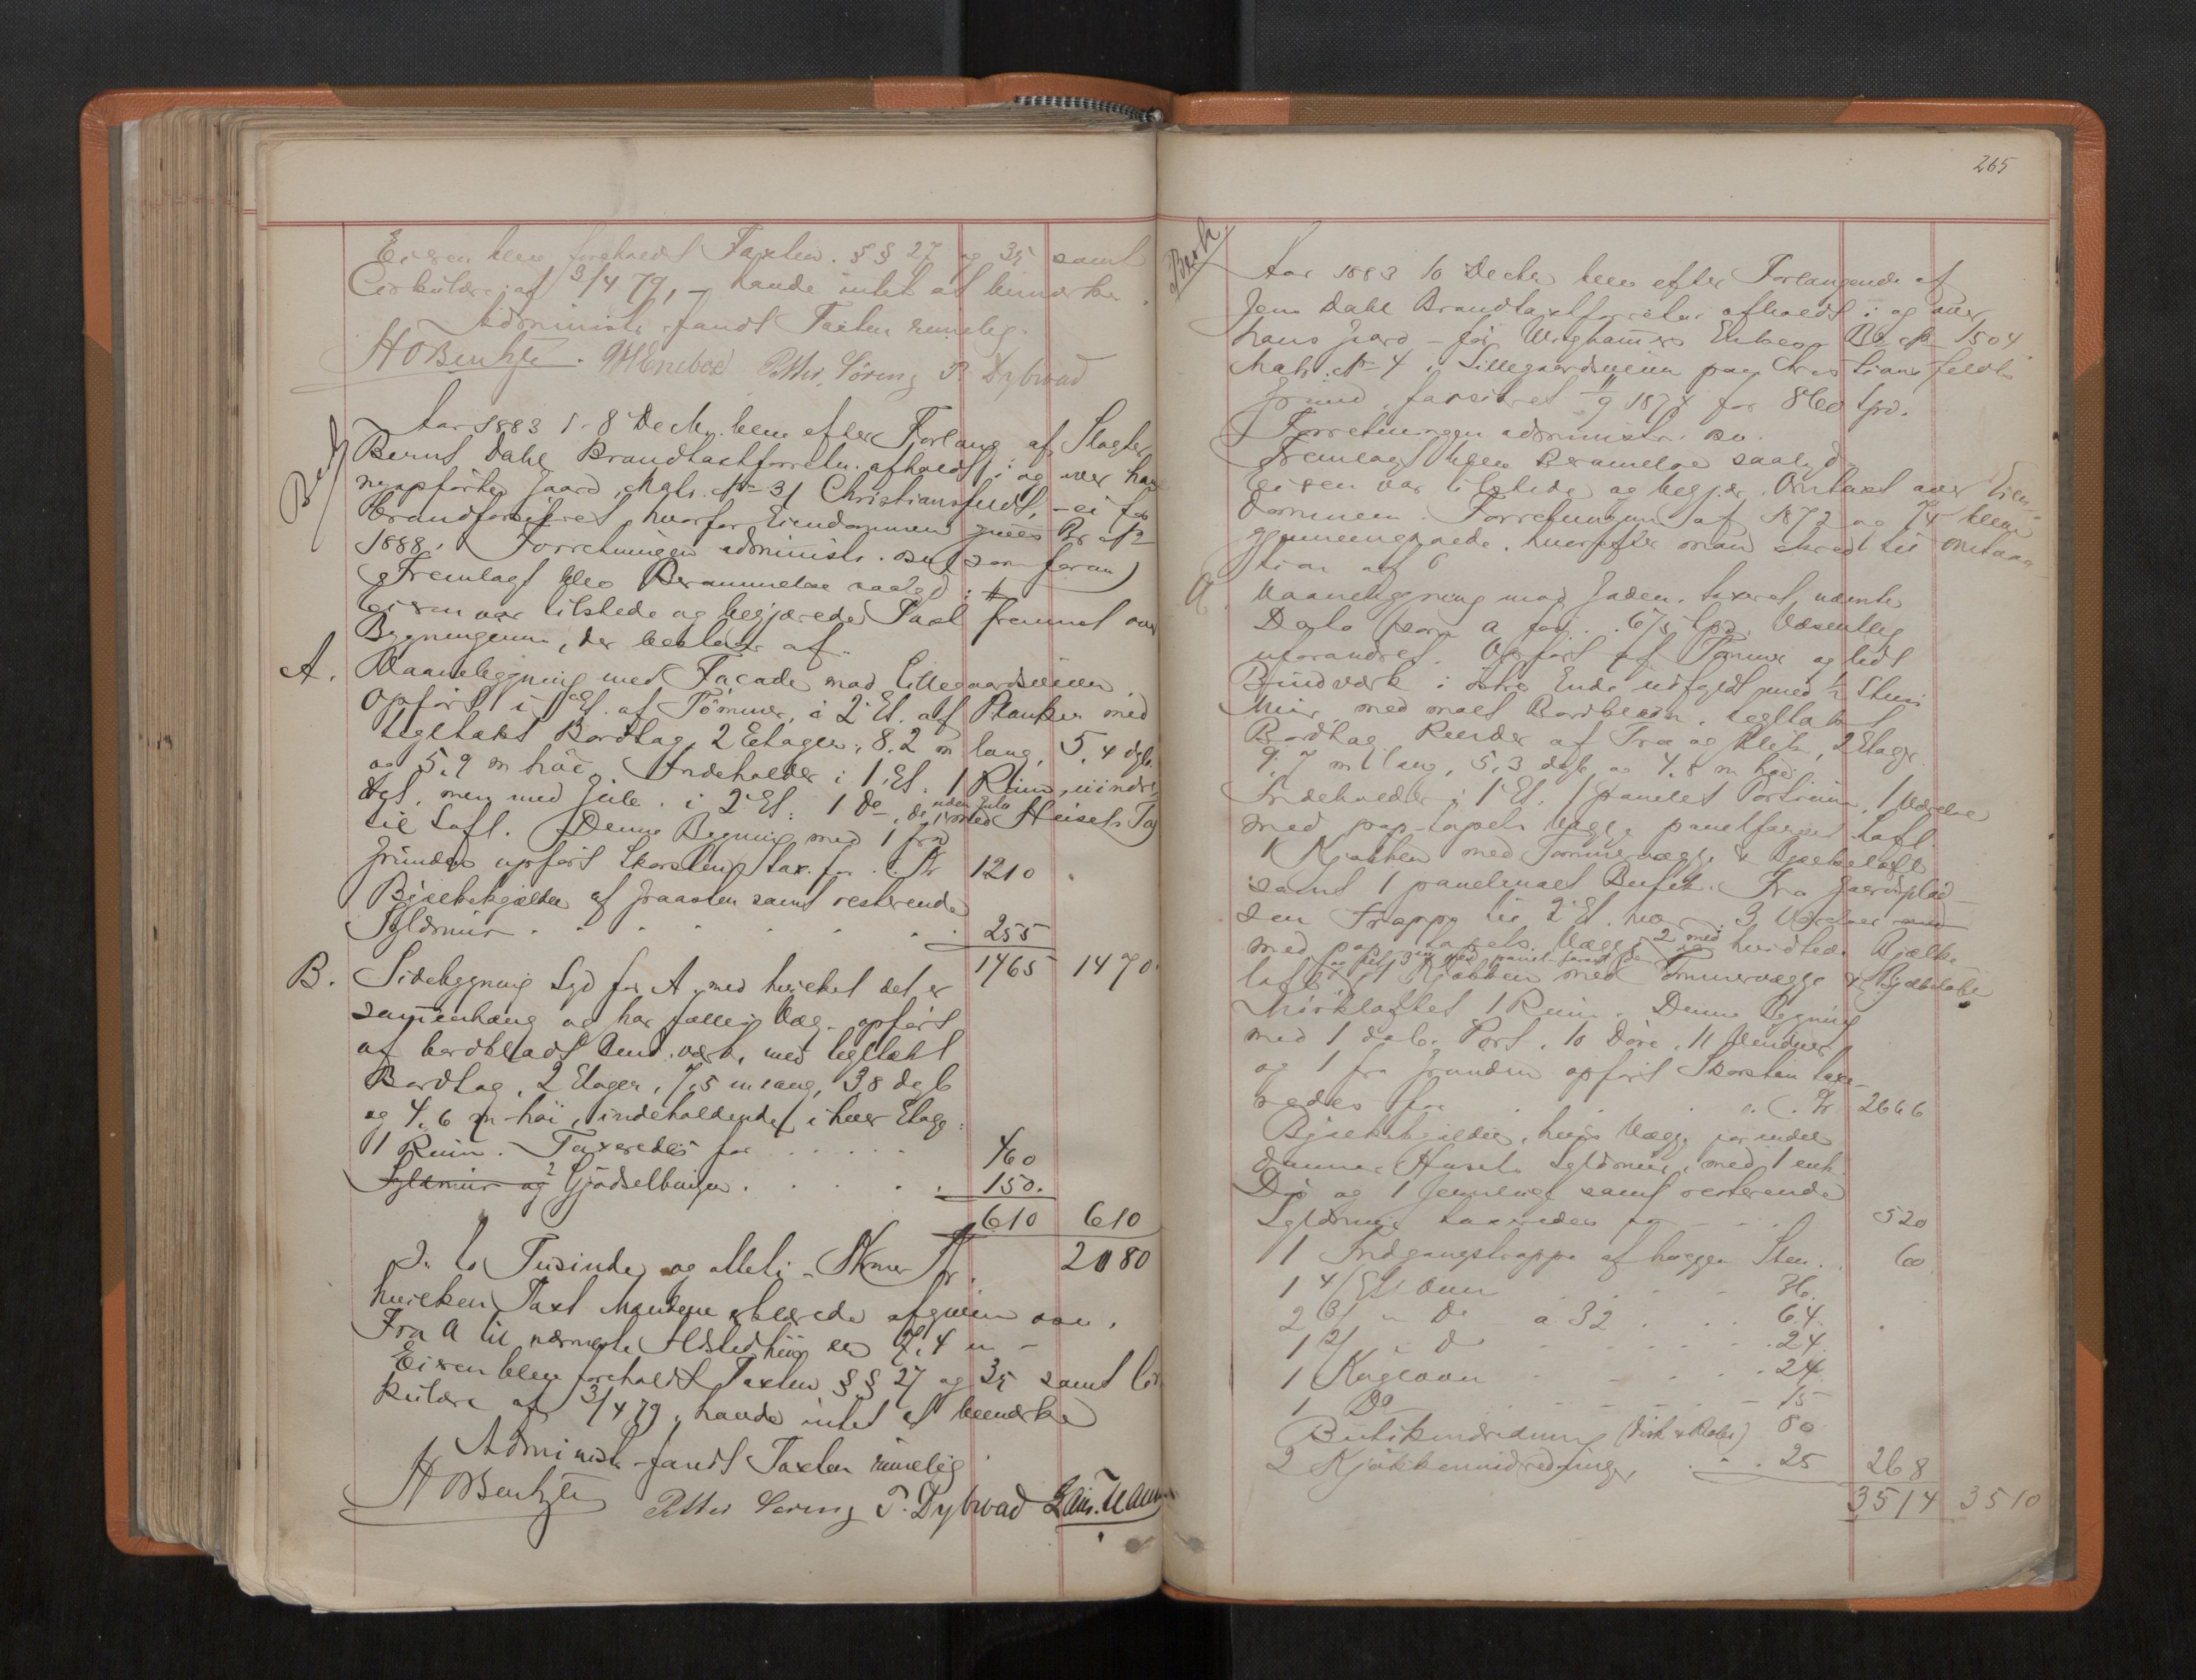 Eieren blev foreholdt Taxtlov. §§ 27 og 35 samt
Cirkulære af 3/4 79, – havde intet at bemærke.
Administr. fandt Taxten rimelig.
HOBentzen. Petter Søreng P. Dybwad
Aar 1883 d. 8 Decbr. blev efter Forlang. af Slagter
Bernt Dahl Brandtaxtforretn. afholdt i og over hans
nyopførte Gaard, Matr. No 31 Christiansfeldt, – ei før
brandforsikret, hvorfor Eiendommen gives Br. No
1888. Forretningen administr. (som foran)
Fremlagt blev Berammelse saalyd. #
Eieren var tilstede og begjærede Taxt fremmet over
Bygningerne, der bestaar af:
A. Vaanebygning med Facade mod Lillegaardsveien.
Opført i 1 Et. af Tømmer, i 2 Et. af Planker med
tegltakt Bordtag, 2 Etager, 8.2 m lang, 5,4 dyb
og 5.9 m høi. Indeholder i 1 Et. 1 Rum uindre-
det, men med Gulv. i 2 Et. 1 Do
uden Gulv
til Loft. Denne Bygning med 1 fra
Grunden opført Skorsten tax. for .. Kr 1210
Bjælkekjælder af Graasten samt resterende
Syldmur . . . . . . . 255
1465 1470.
B. Sidebygning Syd for A, med hvilket det er
sammenhæng. og har fælles Væg. opført
af bordklædt Bind.værk, med tegltækt
Bordtag, 2 Etager, 7,5 m lang, 3,8 dyb
og 4,6 m høi, indeholdende i hver Etage:
1 Rum. Taxeredes for . . . . . 460
Syldmur og 2 Gjødselbinger . . . . . 150.
610 610
Er to Tusinde og otteti – Kroner Kr. 2080
hvilken Taxt Mændene erklærede afgiven
Fra A til nærmeste Ildsted 7,4 m –
Eieren blev foreholdt Taxtlov §§ 27 og 35 samt Cir-
kulære af 3/4 79, havde intet at bemærke
Administr. fandt Taxten rimelig
HOBentzen Petter Søreng P. Dybwad
265
Aar 1883 10 Decbr. blev efter Forlangende af
Jens Dahl Brandtaxtforretn. afholdt i og over
hans Gaard – før Enkes Br. No 1504
Matr. No 4 i Lillegaardsveien paa Christiansfeldts
Grund, taxeret 1874 for 860 Spd.
Forretningen administr. so.
Fremlagt blev Berammelse saalyd
Eieren var tilstede og begjær. Omtaxt over Eien-
dommen. Forretningen af 1872 og 74 blev
gjennemgaaede, hvorefter man skred til Omtaxa-
tion af
a. Vaanebygning mod Gaden, taxeret nævnte
Dato som a for .. 675 Spd. Væsentlig
uforandret. Opført af Tømmer og lidt
Bindværk i østre Ende udfyldt med 1/2 Stens
Mur, med malt Bordklædn. tegltakt
Bordtag, Render af Træ og Blik, 2 Etager
9,7 m lang, 5,3 dyb og 4,8 m høi
Indeholder i 1 Et. 1 panelet Portrum, 1 Værelse
med pap-tapets. Vægge panelfarvet Loft.
1 Kjøkken med Tømmervægge & Bjælkeloft
samt 1 panelmalt Butik. Fra Gaardsplad-
sen Trappe til 2 Et. hvor 3 Værelser med
med pap-tapets. Vægge 2 med hvidtede Bjælke
loft, 1 Kjøkken med Tømmervægge & Bjælkeloft
Mørkloftet 1 Rum. Denne Bygning
med 1 dob. Port, 10 Døre, 11 Vinduer
og 1 fra Grunden opført Skorsten taxe-
redes for . . . Kr 2666
Bjælkekjælder, hvis Vægge for endel
danner Husets Syldmur, med 1 enk.
Dør og 1 samt resterende
Syldmur taxeredes for – – – . 520
1 Indgangstrappe af huggen Sten. . 60
1 4/Et. Ovn . . . . 36.
2 3/ " Do – a 32 . . . 64.
1 2/ " d – – – . 24.
1 Kogeovn – – – . 24.
1 Do – – – – 15
Butikindredning (Disk & Reoler) 80
2 Kjøkkenindredninger . . . 25 268
3514 3510